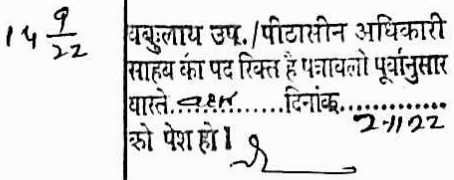 14 9/22
यबुलाय उप./पीठासीन अधिकारी
साहब का पद रिक्त है पत्रावली पूर्वानुसार
वास्ते..............दिनांक.............
2-11-22
को पेश हो।